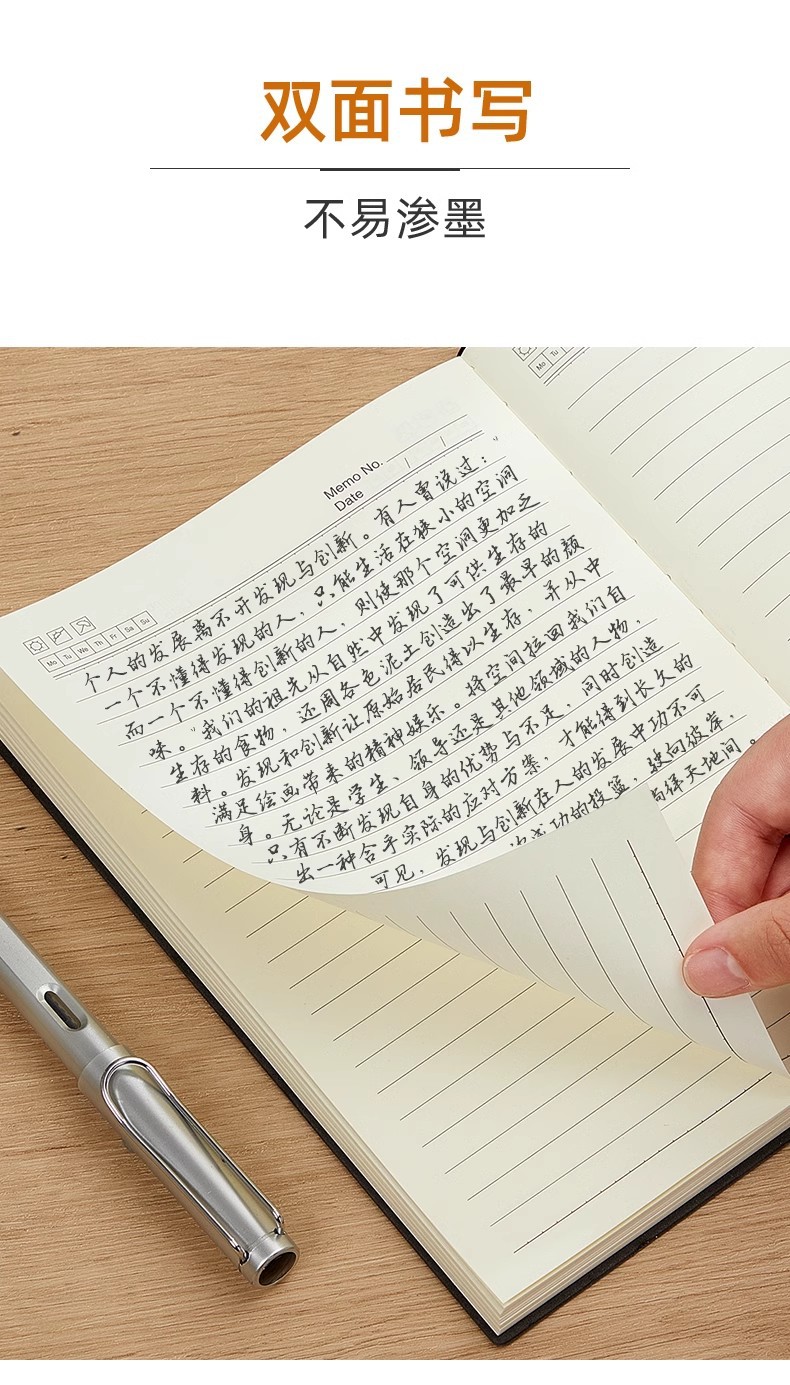 双面书写
不易渗墨
Mo Tu
Memo No.
Date / /
Mo Tu We Th Fr Sa Su
个人的发展离不开发现与创新。有人曾说过："
一个不懂得发现的人，只能生活在狭小的空洞
而一个不懂得创新的人，则使那个空洞更加乏
味。"我们的祖先从自然中发现了可供生存的
生存的食物，还用各色泥土创造出了最早的颜
料。发现和创新让原始居民得以生存，并从中
满足绘画带来的精神娱乐。将空间拉回我们自
身。无论是学生、领导还是其他领域的人物，
只有不断发现自身的优势与不足，同时创造
出一种合乎实际的应对方案，才能得到长久的
可见，发现与创新在人的发展中功不可
成功的投篮，驶向彼岸，
徉天地间。